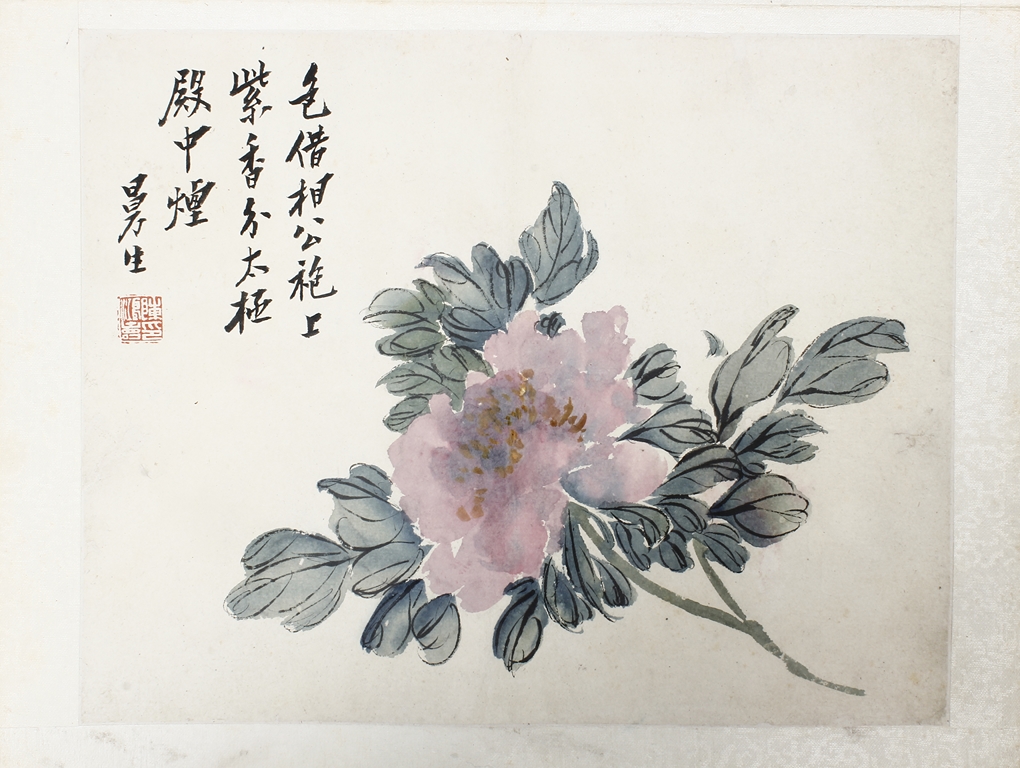 色借相公袍上
紫香分太極
殿中煙
曼生